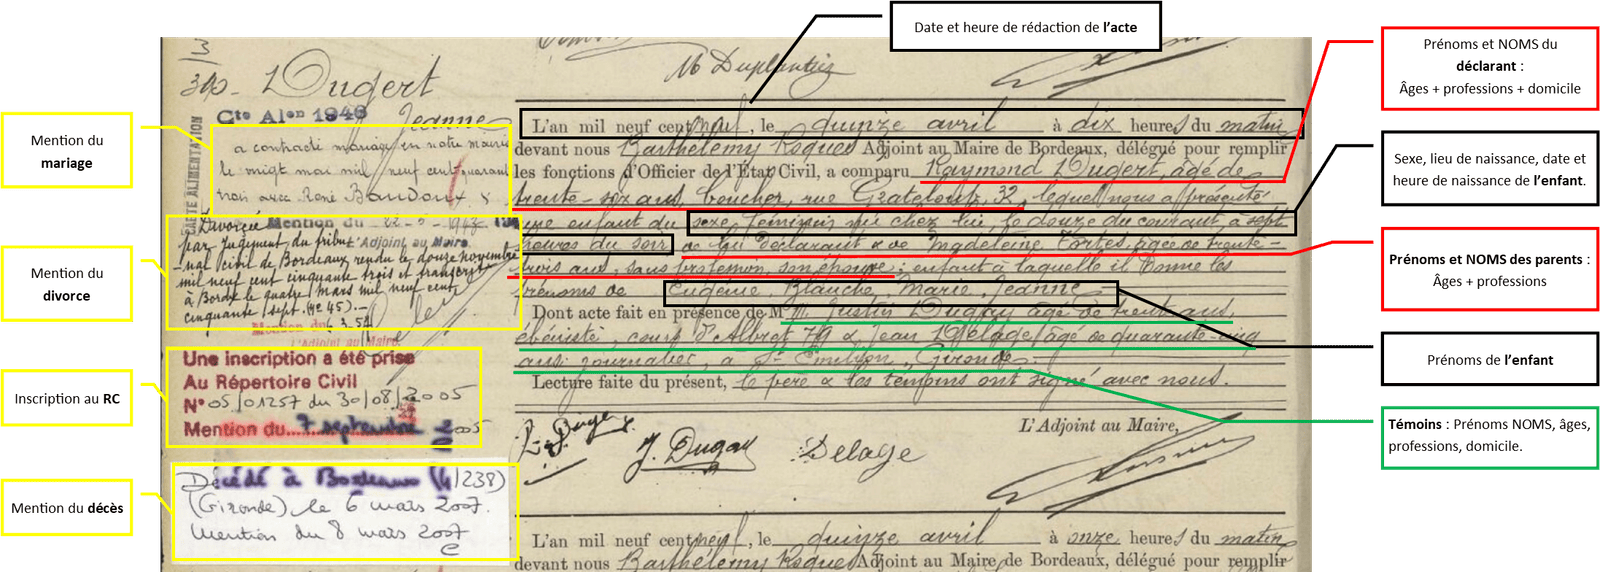 Date et heure de rédaction de l'acte
Prénoms et NOMS du
déclarant :
Âges + professions + domicile
Sexe, lieu de naissance, date et
heure de naissance de l'enfant.
Prénoms et NOMS des parents :
Âges + professions
Prénoms de l'enfant
Témoins : Prénoms NOMS, âges,
professions, domicile.
Mention du
mariage
Mention du
divorce
Inscription au RC
Mention du décès
M Duplantier
340. Dugert
Cte Alon 1946
Jeanne
CARTE ALIMENTATION
a contracté mariage en notre mairie
le vingt mai mil neuf cent quarante
trois avec René Baudoux
Divorcée Mention du
par jugement du tribu- L'Adjoint au Maire
-nal civil de Bordeaux rendu le douze novembre
mil neuf cent cinquante trois et transcrit
à Bordx le quatre mars mil neuf cent
cinquante sept. (N° 45).
Mention du
L'Adjoint au Maire,
Une inscription a été prise
Au Répertoire Civil
N° 05/01257 du 30/08/2005
Mention du 7 septembre 2005
Décédé à Bordeaux (4/238)
(Gironde) le 6 mars 2007.
Mention du 8 mars 2007
L'an mil neuf cent neuf, le quinze avril à dix heures du matin
devant nous Barthélemy Roques Adjoint au Maire de Bordeaux, délégué pour remplir
les fonctions d'Officier de l'État Civil, a comparu Raymond Dugert, âgé de
trente-six ans, boucher, rue Grateloup, 32, lequel nous a présenté
une enfant du sexe féminin, né chez lui, le douze du courant à sept
heures du soir de lui déclarant & de Magdeleine Tortes, âgée de trente-
trois ans, sans profession, son épouse ; enfant à laquelle il donne les
prénoms de Eugénie, Blanche, Marie, Jeanne
Dont acte fait en présence de M. M. Justin Dugay âgé de trente ans,
ébéniste, cours d'Albret 79 & Jean Delage, âgé de quarante-cinq
ans, journalier, à St Emilion, Gironde.
Lecture faite du présent, le père & les témoins ont signé avec nous.
L'Adjoint au Maire,
J. Dugay
Delage
L'an mil neuf cent neuf, le quinze avril à onze heures du matin
devant nous Barthélemy Roques Adjoint au Maire de Bordeaux, délégué pour remplir